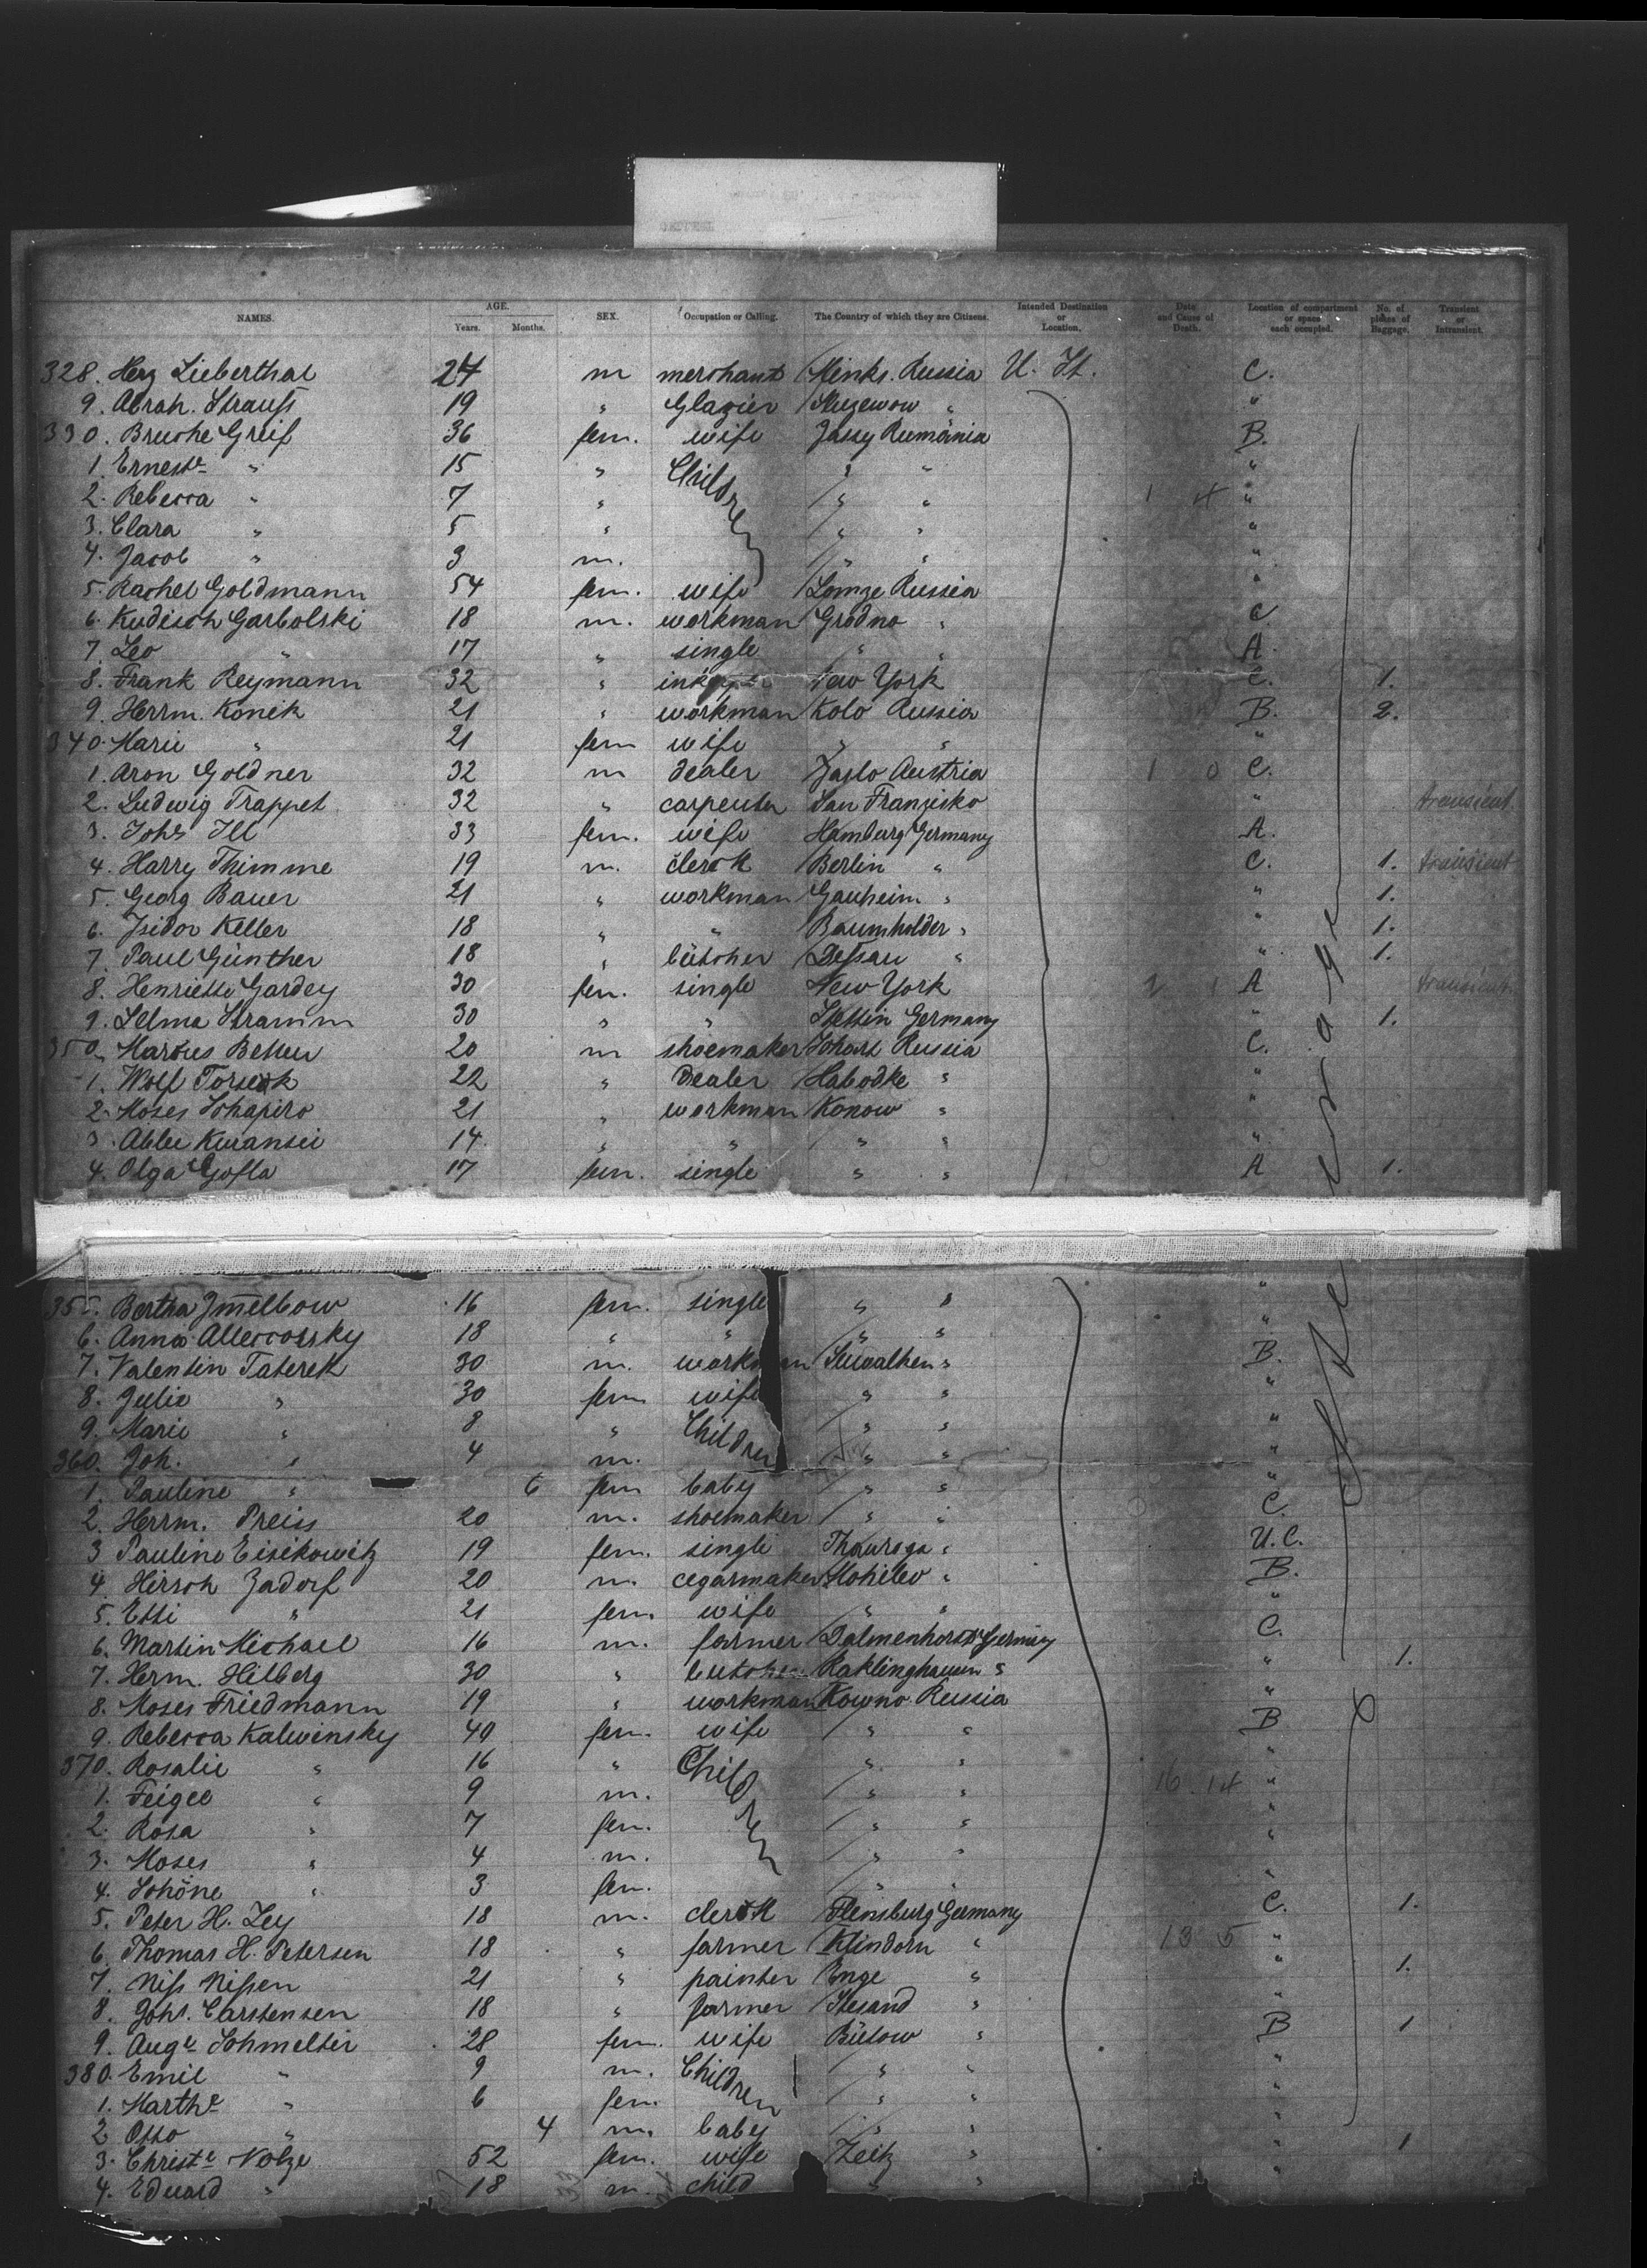 NAMES. AGE. Years. Months. SEX. Occupation or Calling. The Country of which they are Citizens. Intended Destination or Location. Date and Cause of Death. Location of compartment or space each occupied. No. of pieces of Baggage. Transient or Intransient.
328. Herz Lieberthal 24 m merchant Minks. Russia U. St. C.
9. Abrah. Strauß 19 " Glazier " "
330. Bruche Greif 36 fem. wife Jassy Rumänia B.
1. Ernest<sup>e</sup> " 15 " Children " " "
2. Rebecca " 7 " " " 1 4 "
3. Clara " 5 " " " "
4. Jacob " 3 m. " " "
5. Rachel Goldmann 54 fem. wife Lomze Russia "
6. Kudisch Garbolski 18 m. workman Grodno " C
7. Leo " 17 " single " " A.
8. Frank Reymann 32 " New York C. 1.
9. Herrm. Konik 21 " workman Kolo Russia B. 2.
340. Marie " 21 fem wife " " "
1. Aron Goldner 32 m dealer Jaslo Austria 1 0 C.
2. Ludwig Trappet 32 " carpenter San Franzisko " transient
3. Joh<sup>s</sup> Ill 33 fem. wife Hamburg Germany A.
4. Harry Thimme 19 m. clerck Berlin " C. 1. transient
5. Georg Bauer 21 " workman Gauheim " " 1.
6. Isidor Keller 18 " " Baumholder " " 1.
7. Paul Günther 18 " bütcher Deßau " " 1.
8. Henriette Gardey 30 fem. single New York 2 1 A transient
9. Selma Stramm 30 " " Stettin Germany " 1.
350. Marcus Betten 20 m shoemaker Russia C.
1. Wolf 22 " Dealer Habodke " "
2. Moses Schapiro 21 " workman Konow " "
3. Abbe Kuransei 14. " " " " "
4. Olga Gofla 17 fem. single " " A 1.
355. Bertha Imelbow 16 fem. single " " "
6. Anna 18 " " " " "
7. Valentin Taterek 30 m. workman Suwalken " B.
8. Julie " 30 fem wife " " "
9. Marie " 8 " Children " " "
360. Joh. " 4 m. " " "
1. Pauline " 6 fem baby " " "
2. Herrm. Preiss 20 m. shoemaker " " C.
3 Pauline Eisikowitz 19 fem. single " U.C.
4. Hirsch Zadorf 20 m. cegarmaker Mohilev " B.
5. Etti " 21 fem. wife " " "
6. Martin Michael 16 m. farmer Dalmenhorst Germny C.
7. Herm. Hilberg 30 " butcher Raklinghausen " " 1.
8. Moses Friedmann 19 " workman Kowno Russia "
9. Rebecca Kalwinsky 40 fem. wife " " B
370. Rosalie " 16 " Children " " "
1. Feigel " 9 m. " " 16 14 "
2. Rosa " 7 fem. " " "
3. Moses " 4 m. " " "
4. Schöne " 3 fem. " " "
5. Peter H. Ley 18 m. clerck Flensburg Germany C. 1.
6. Thomas H. Petersen 18 " farmer Klindorn " 13 5 "
7. Niss Nissen 21 " painter Enge " " 1.
8. Joh<sup>s</sup>. Carstensen 18 " farmer Stesand " "
9. Aug<sup>e</sup> Schmelter 28 fem. wife Bütow " B 1
380. Emil " 9 m. Children " " "
1. Marth<sup>e</sup> " 6 fem. " " "
2 Otto " 4 m. baby " " "
3. Christ<sup>e</sup> Nolze 52 fem. wife Zeitz " " 1
4. Eduard " 18 m. child " " "
Steerage